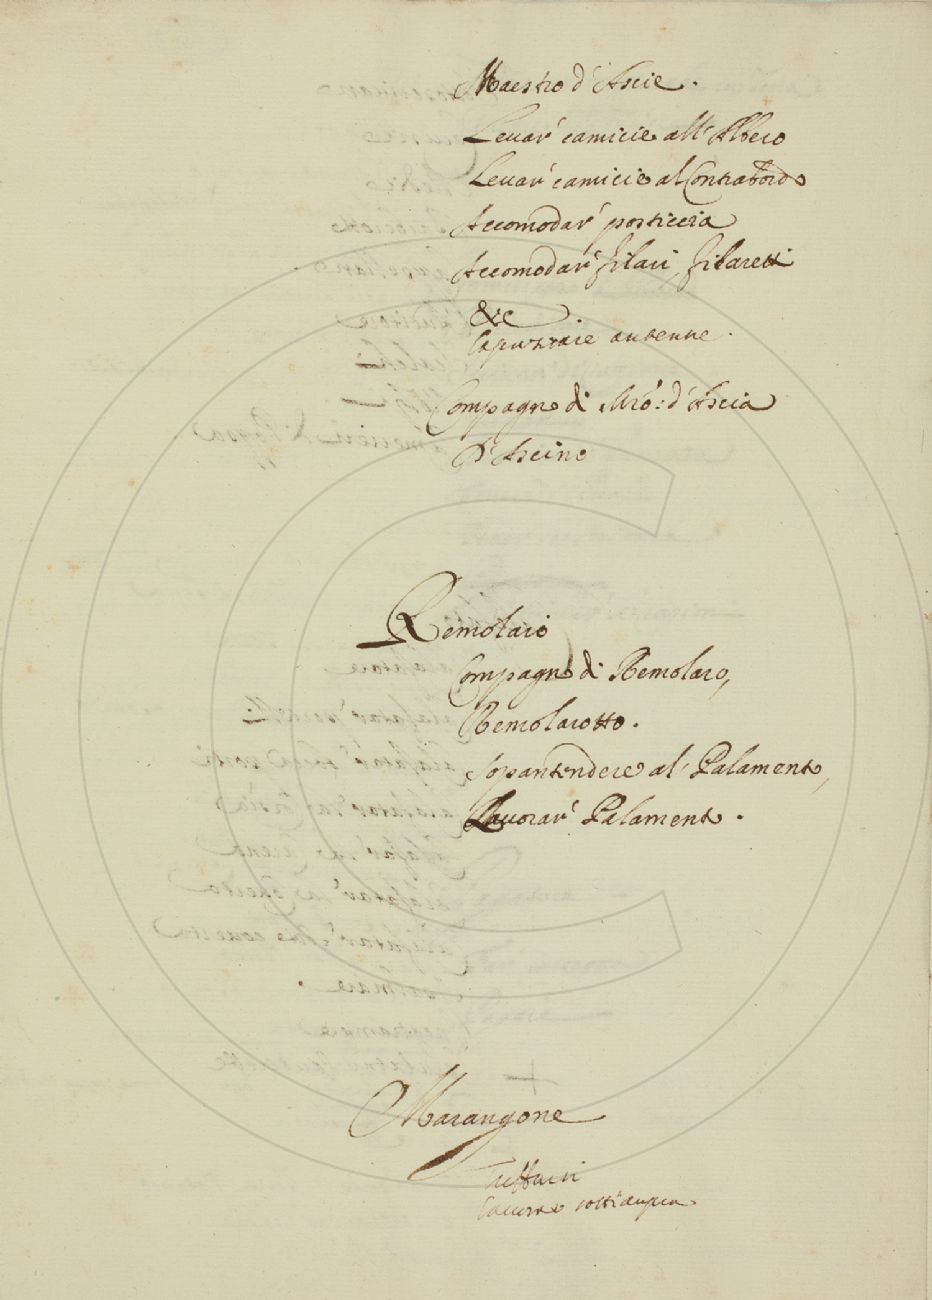 Maestro d'Ascie.
Levar' camicie all'Albero
Levar' camicie al Contrabordo
Accomodar' posticcia
Accomodar' filari, filaretti
&c
Capuzzaie antenne.
Compagno di Mro: d'Ascia
D'Ascino
Remolaio
Compagno di Remolaro,
Remolarotto.
Sopantendere al Palamento,
Lavorar' Palamento.
Marangone
Tuffarsi
Lavorare sott'acqua